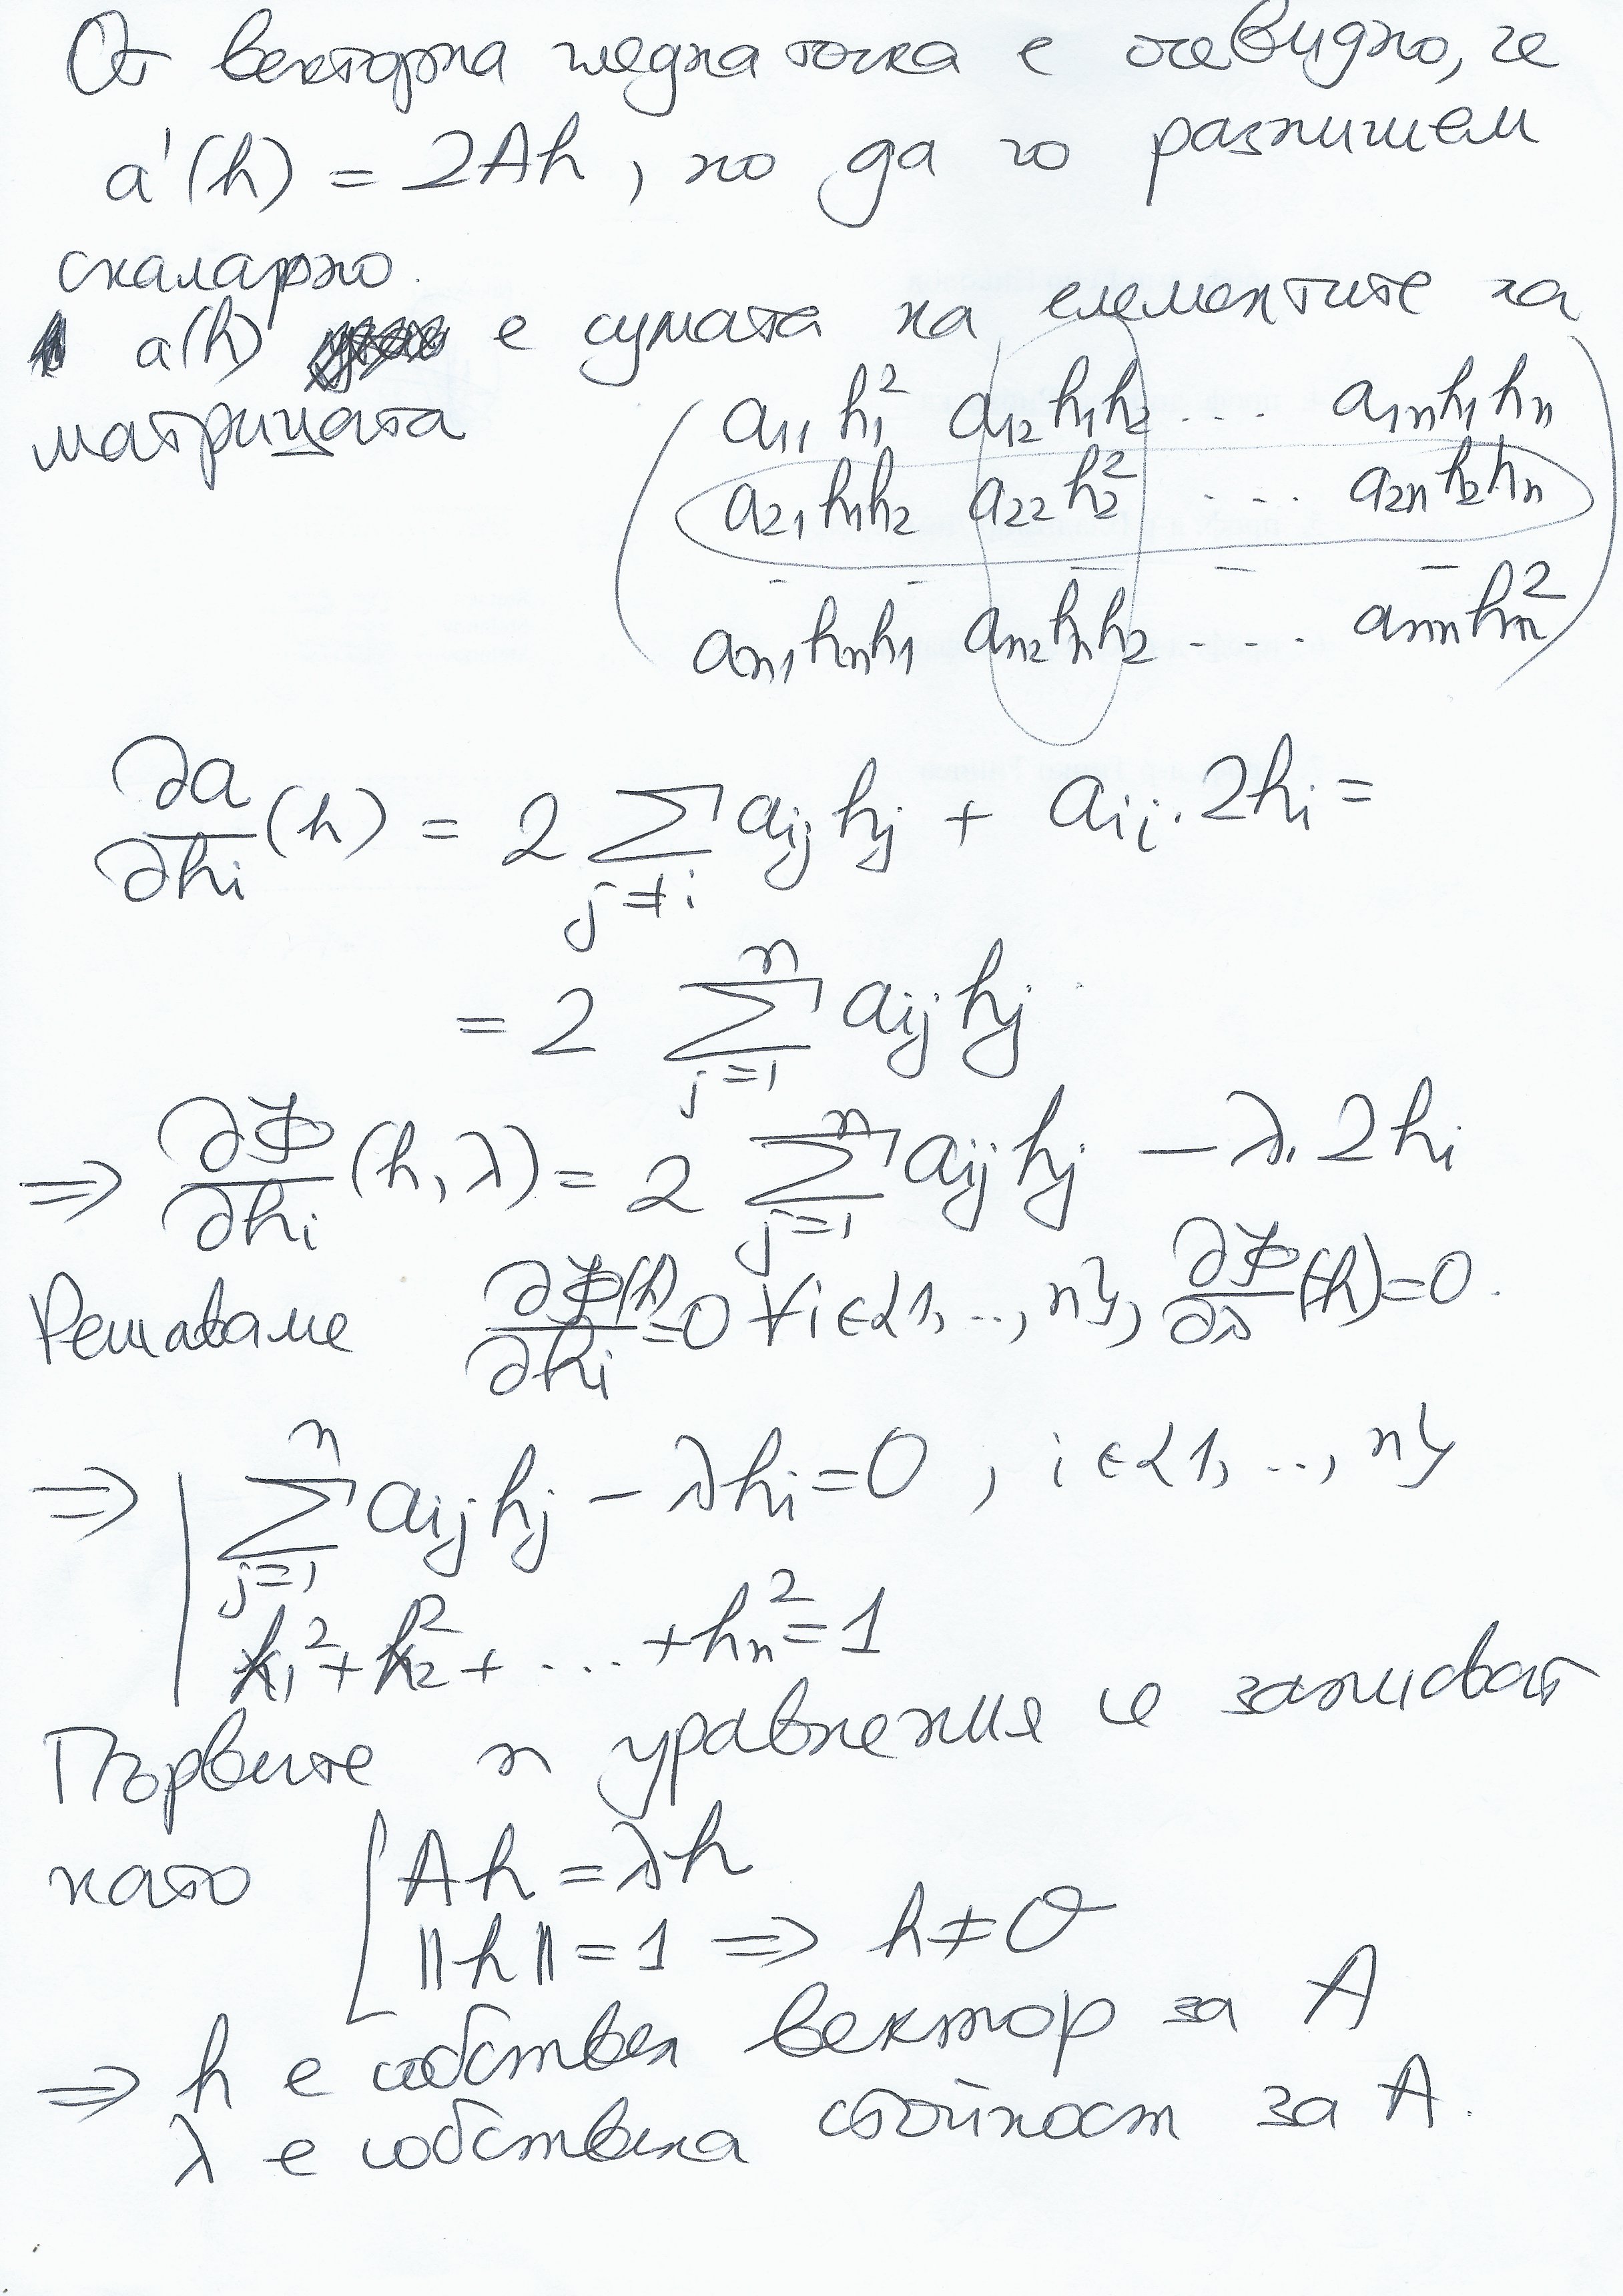 От векторна гледна точка е очевидно, че
a'(h) = 2Ah, но да го разпишем
скаларно.
a(h) е сумата на елементите на
матрицата
( a₁₁h₁² a₁₂h₁h₂ ... a₁ₙh₁hₙ
a₂₁h₁h₂ a₂₂h₂² ... a₂ₙh₂hₙ
- - - - -
aₙ₁hₙh₁ aₙ₂hₙh₂ ... aₙₙhₙ² )
∂a/∂hᵢ (h) = 2 ∑_{j≠i} aᵢⱼhⱼ + aᵢᵢ.2hᵢ =
= 2 ∑_{j=1}^{n} aᵢⱼhⱼ
⇒ ∂Φ/∂hᵢ (h, λ) = 2 ∑_{j=1}^{n} aᵢⱼhⱼ − λ.2hᵢ
Решаваме ∂Φ/∂hᵢ (h) = 0 ∀i∈{1,..,n}, ∂Φ/∂λ (h) = 0.
⇒ | ∑_{j=1}^{n} aᵢⱼhⱼ − λhᵢ = 0 , i∈{1,..,n}
h₁² + h₂² + ... + hₙ² = 1
Първите n уравнения се записват
като [ Ah = λh
||h|| = 1 ⇒ h ≠ 0
⇒ h е собствен вектор за A
λ е собствена стойност за A.